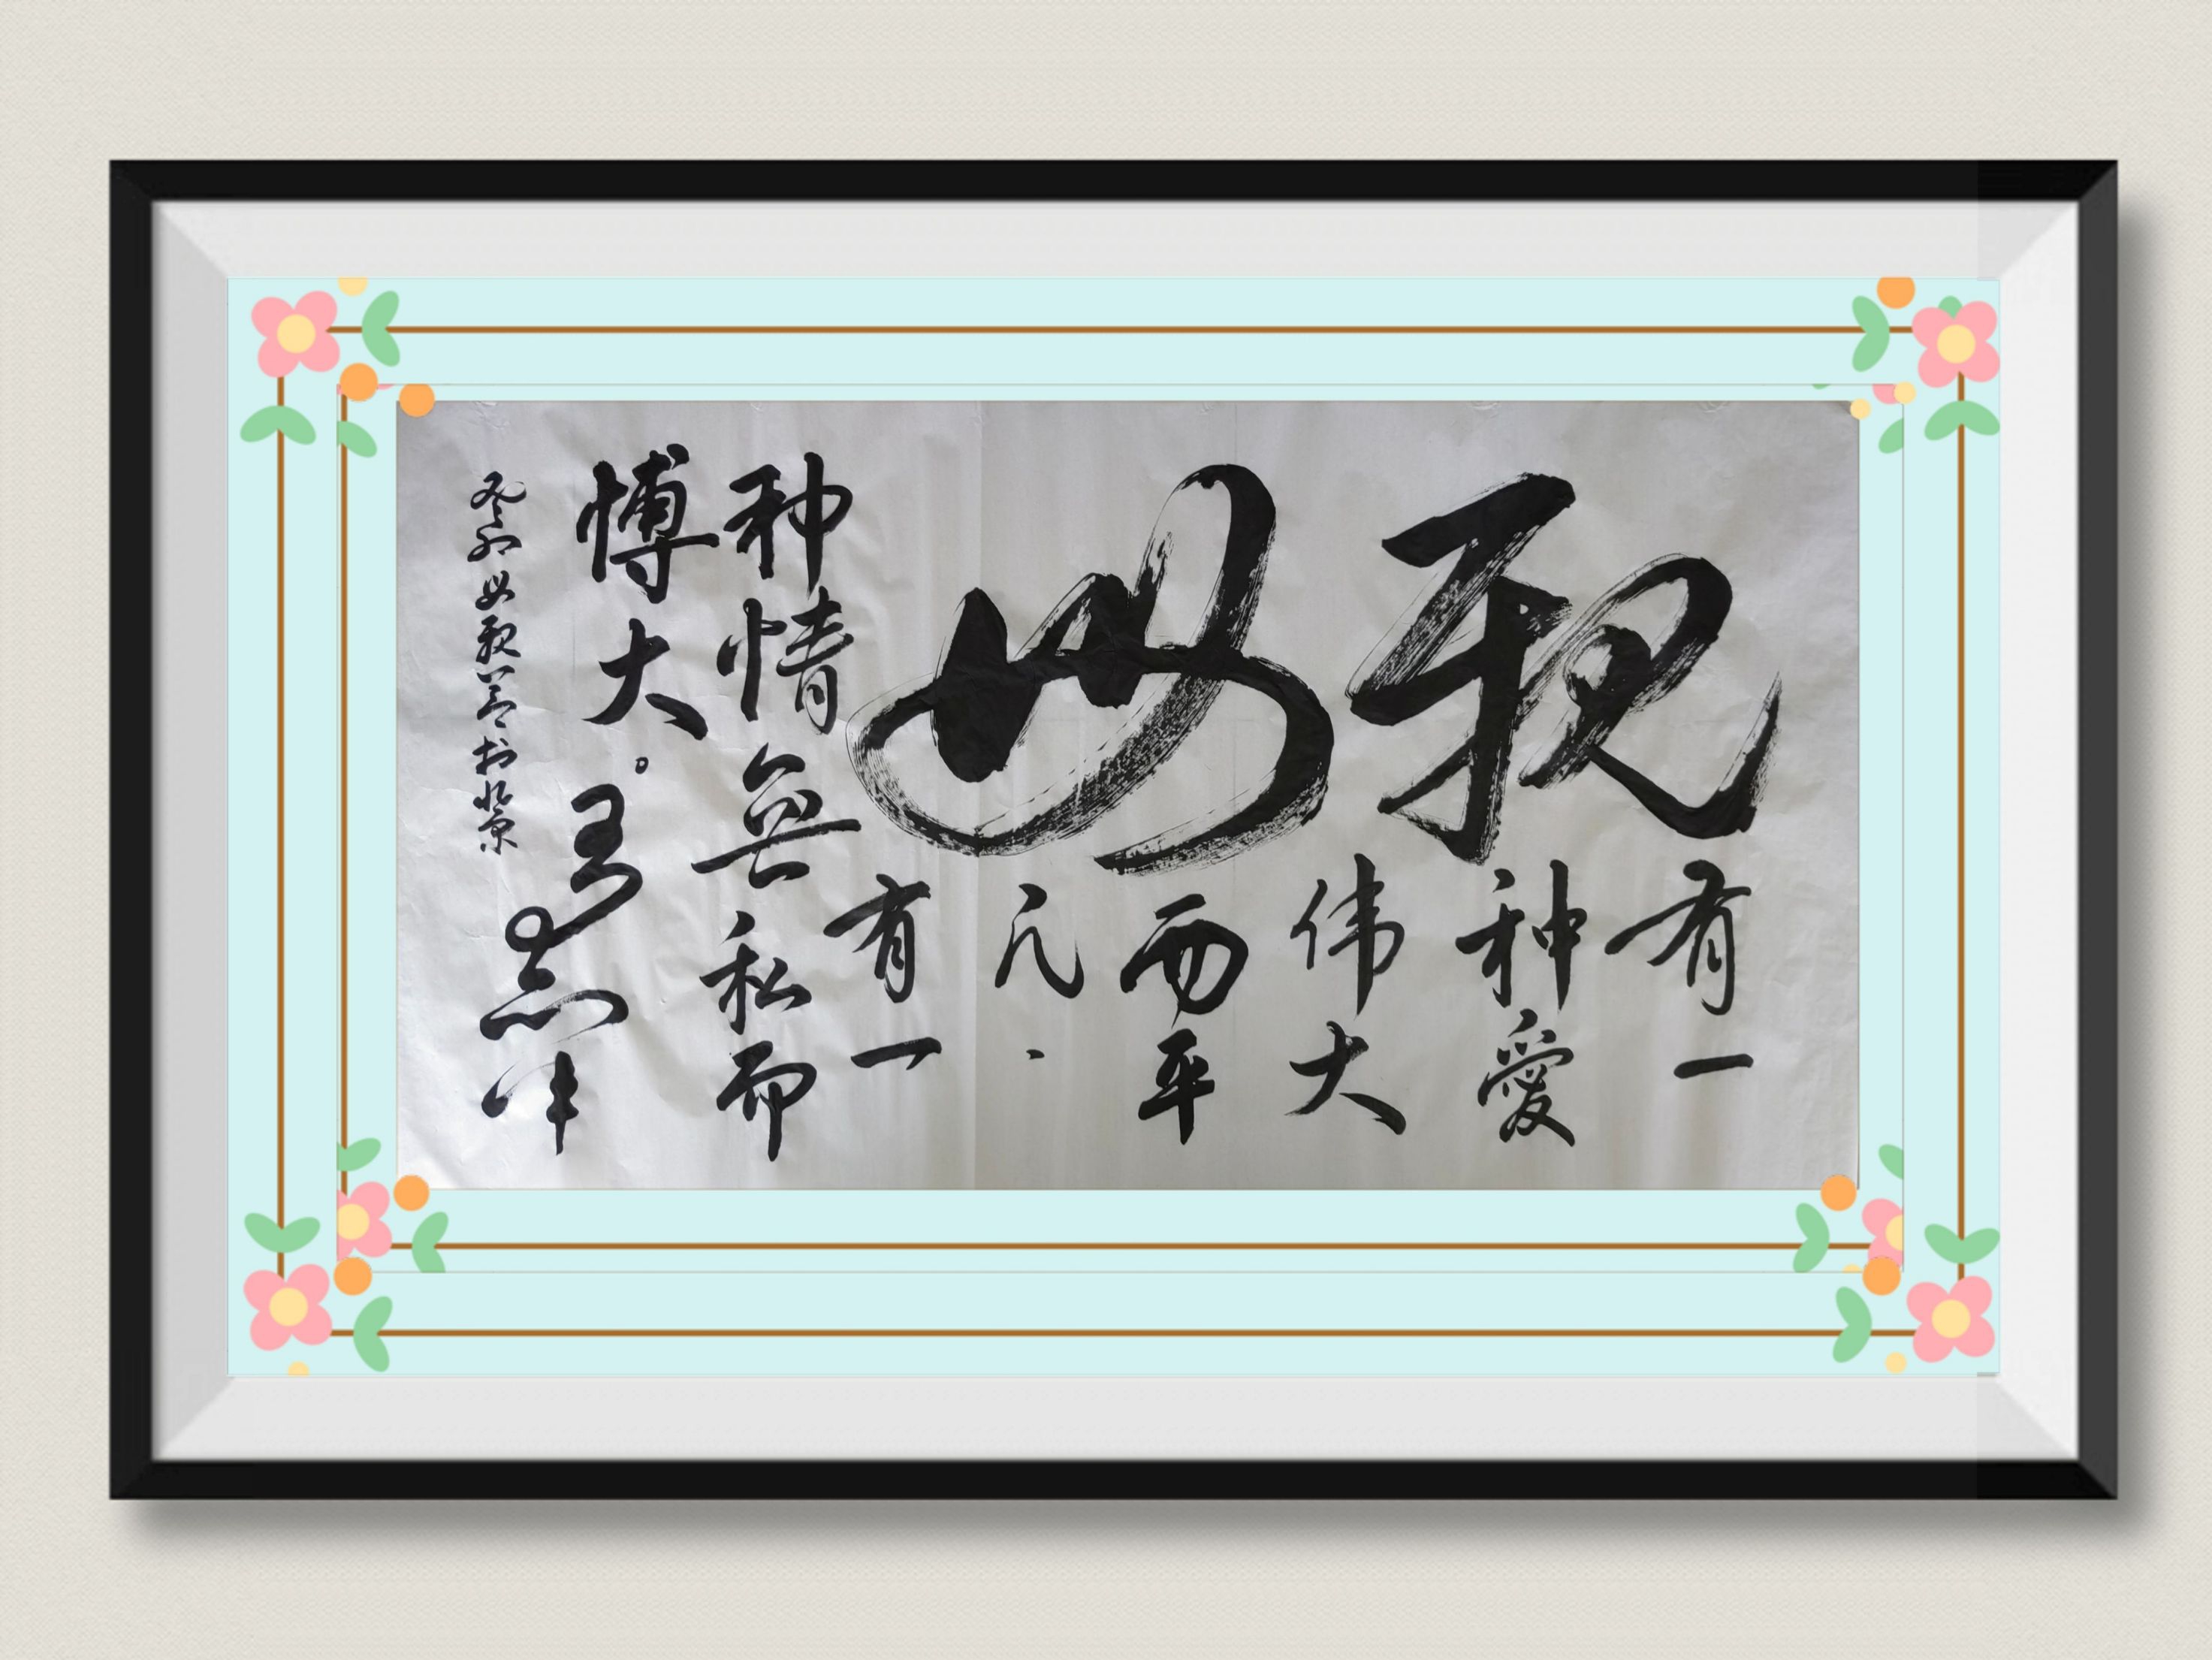 親母
有一
种愛
伟大
而平
凡.
有一
种情無私而
博大。
癸卯母親節书北京